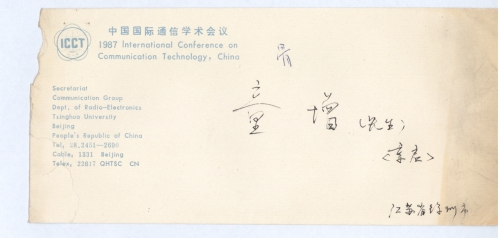 ICCT
中国国际通信学术会议
1987 International Conference on
Communication Technology, China
Secretariat
Communication Group
Dept. of Radio-Electronics
Tsinghua University
Beijing
People's Republic of China
Cable, 1331 Beijing
Telex, 22617 QHTSC CN
童 增 (先生)
江苏省